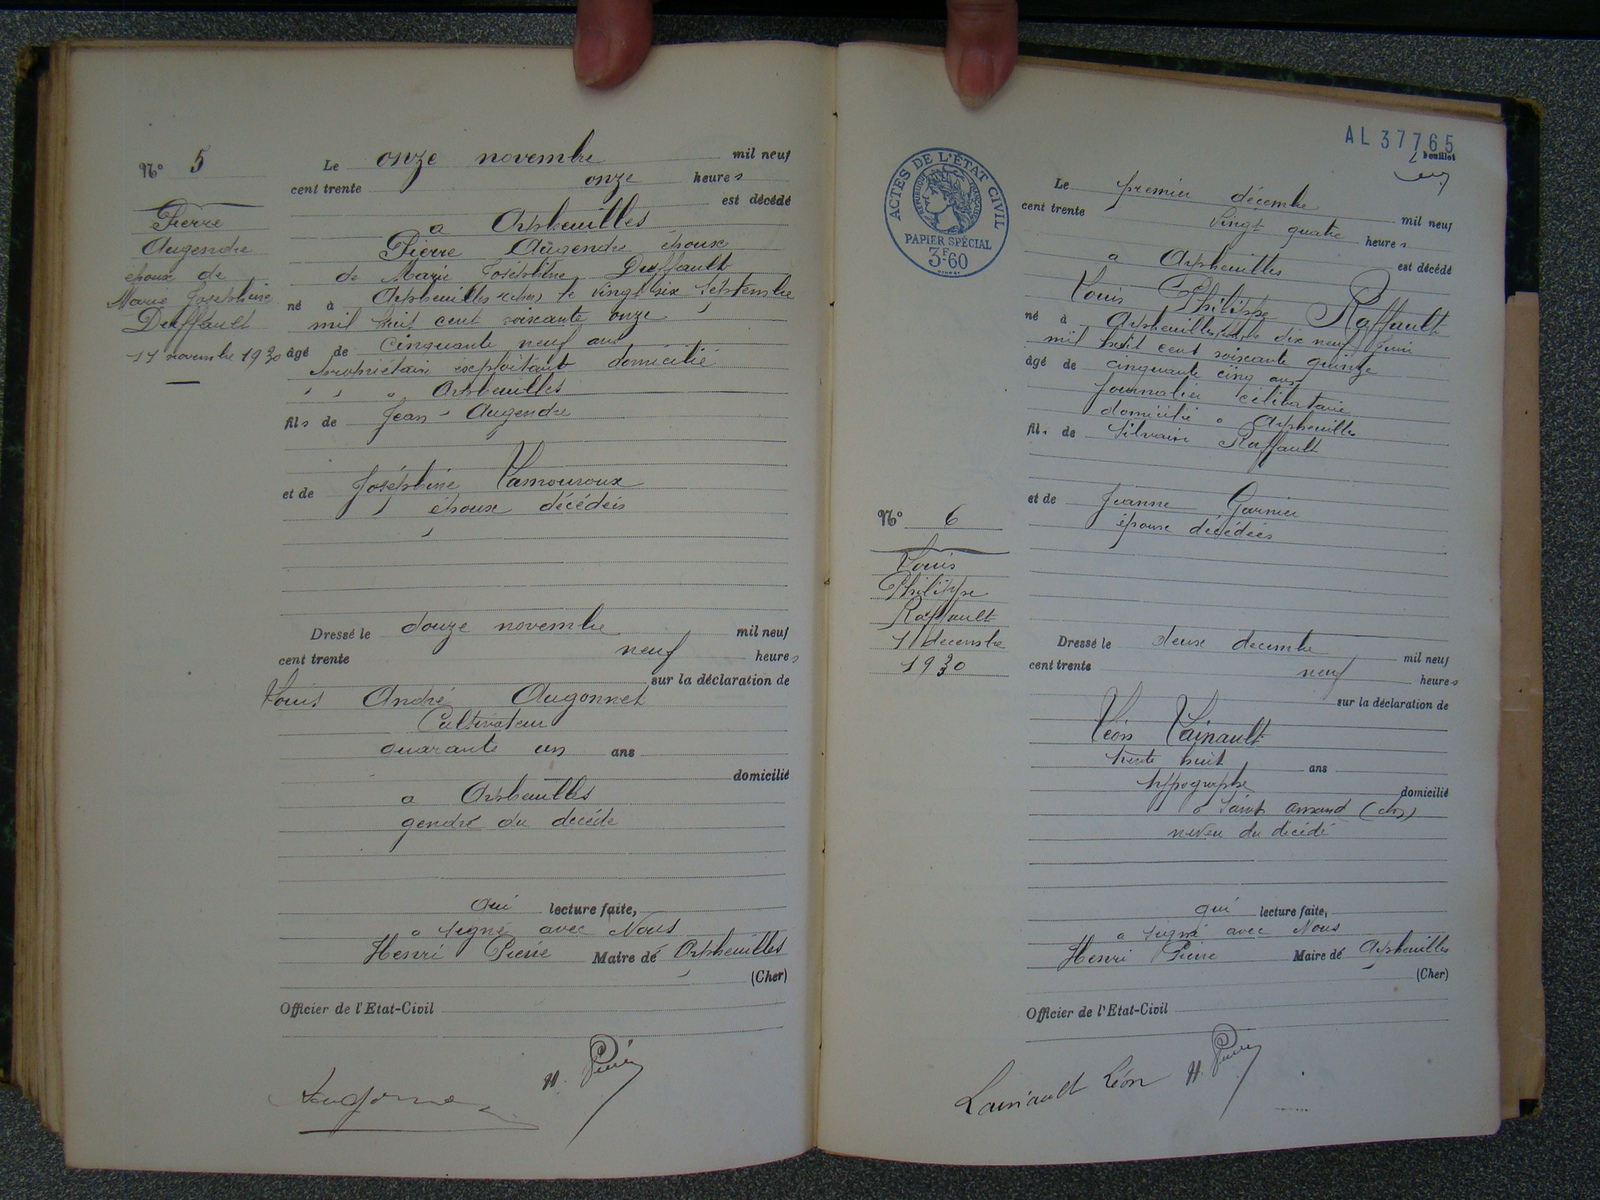 N° 5
Pierre
Augendre
époux de
Marie Joséphine
Deuffault
11 novembre 1930
Le onze novembre mil neuf
cent trente onze heures
est décédé
a Orpheuilles
Pierre Augendre époux
de Marie Joséphine Deuffault
né à Orpheuilles le vingt six septembre
mil huit cent soixante onze
âgé de cinquante neuf ans
propriétaire exploitant domicilié
a Orpheuilles
fils de Jean Augendre
et de Joséphine Lamouroux
époux décédés
Dressé le douze novembre mil neuf
cent trente neuf heures
sur la déclaration de
Louis André Augonnet
Cultivateur
quarante un ans
domicilié
a Orpheuilles
gendre du décédé
qui lecture faite,
a signé avec Nous
Henri Piérie Maire de Orpheuilles
(Cher)
Officier de l'Etat-Civil
H.
AL 37765
feuillet
ACTES DE L'ÉTAT CIVIL
PAPIER SPÉCIAL
3F60
Le premier décembre
cent trente vingt quatre mil neuf
heures
a Orpheuilles est décédé
Louis Philippe Raffault
né à Orpheuilles le dix neuf juin
mil huit cent soixante quinze
âgé de cinquante cinq ans
journalier célibataire
domicilié a Orpheuilles
fils de Silvain Raffault
et de Jeanne Garnier
époux décédés
N° 6
Louis
Philippe
Raffault
1 décembre
1930
Dressé le deux decembre mil neuf
cent trente neuf heures
sur la déclaration de
Léon Lainault
trente huit ans
typographe domicilié
a Saint Amand (cher)
neveu du décédé
qui lecture faite,
a signé avec Nous
Henri Piérie Maire de Orpheuilles
(Cher)
Officier de l'Etat-Civil
Lainault Léon H.